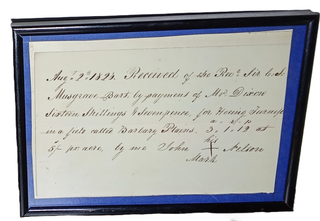 Augt. 2d. 1824. Received of the Revd. Sir C. J.
Musgrave Bart. by payment of Mr. Dixon
Sixteen Shillings & Sevenpence, for Hoeing Turnips
in a field called Barbary Plains, 3. 1. 12 at
a. r. p.
5/- pr. acre, by me John X Nelson
Mark